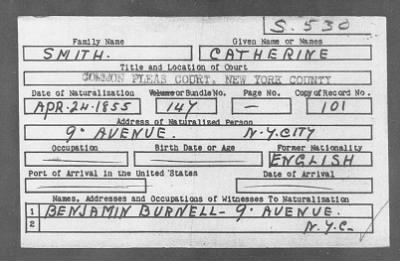 S. 530
Family Name Given Name or Names
SMITH. CATHERINE
Title and Location of Court
COMMON PLEAS COURT, NEW YORK COUNTY
Date of Naturalization Volume or Bundle No. Page No. Copy of Record No.
APR. 24. 1855 147 — 101
Address of Naturalized Person
9º AVENUE. N.Y. CITY
Occupation Birth Date or Age Former Nationality
ENGLISH
Port of Arrival in the United States Date of Arrival
Names, Addresses and Occupations of Witnesses To Naturalization
1 BENJAMIN BURNELL - 9º AVENUE.
2 N.Y.C.